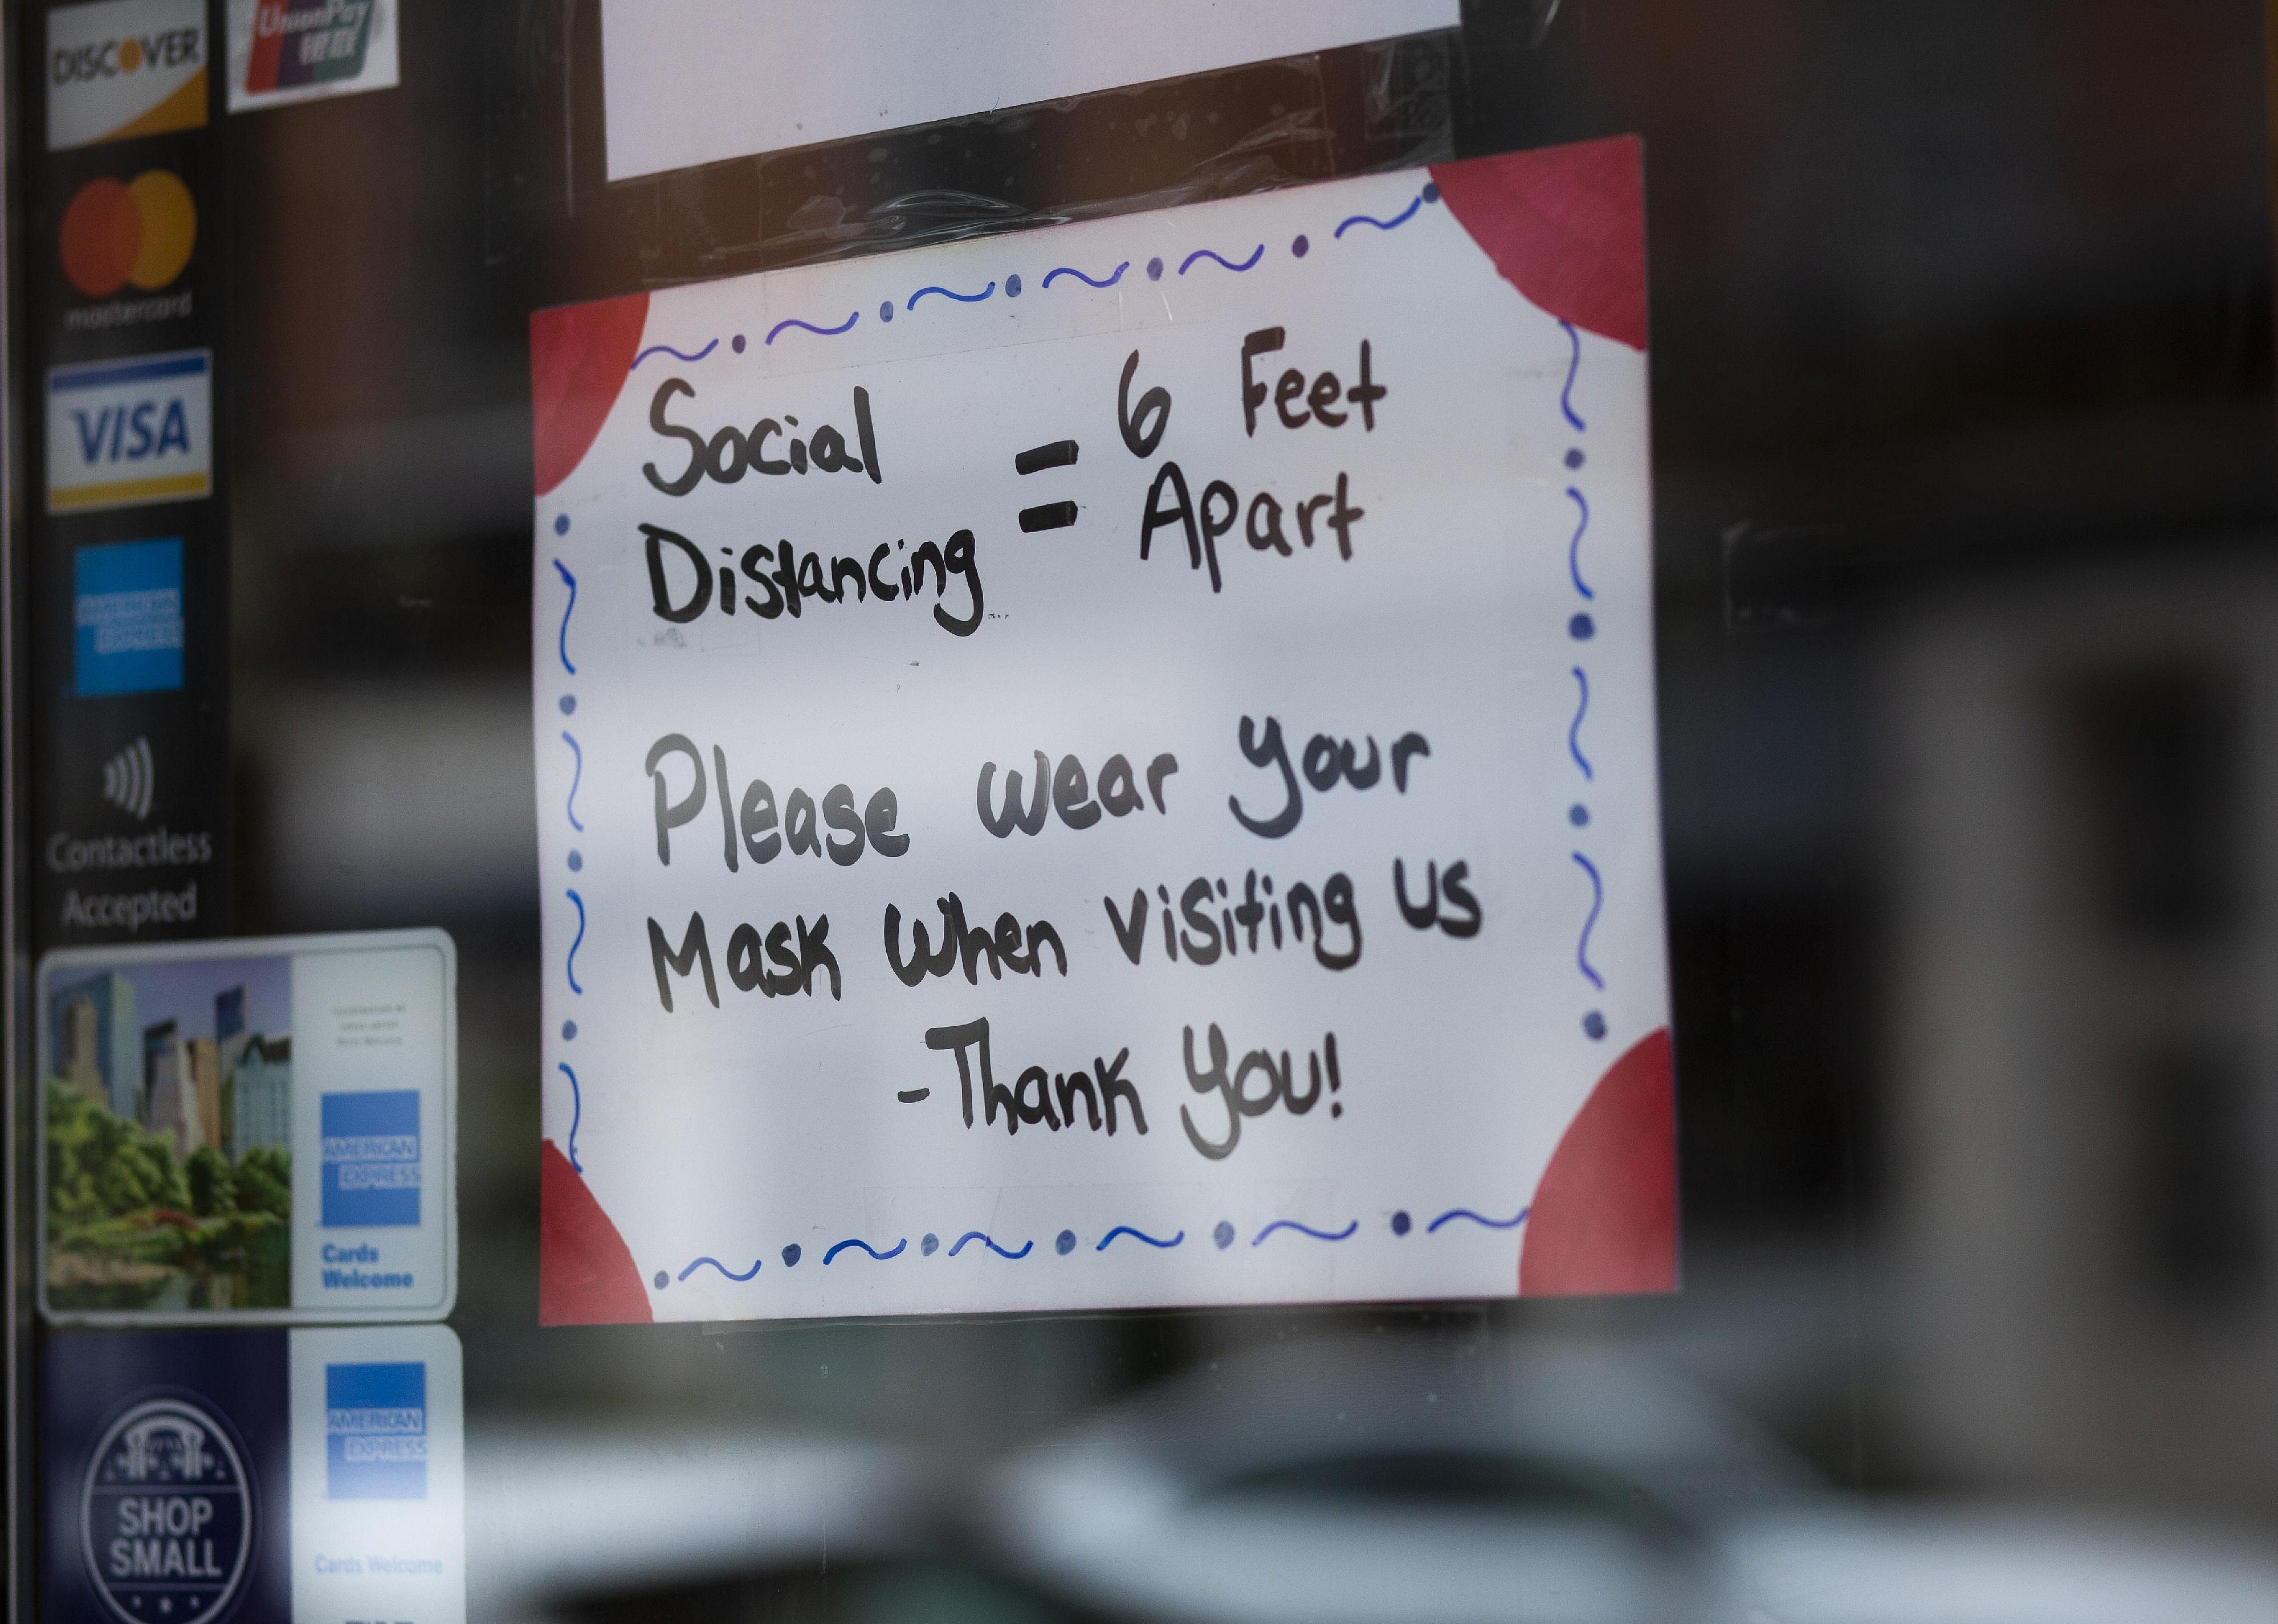 DISCOVER
UnionPay
银联
mastercard
VISA
AMERICAN
EXPRESS
Contactless
Accepted
Social
Distancing
=
6 Feet
Apart
Please wear your
Mask when visiting us
-Thank You!
AMERICAN
EXPRESS
Cards
Welcome
SHOP
SMALL
AMERICAN
EXPRESS
Cards Welcome